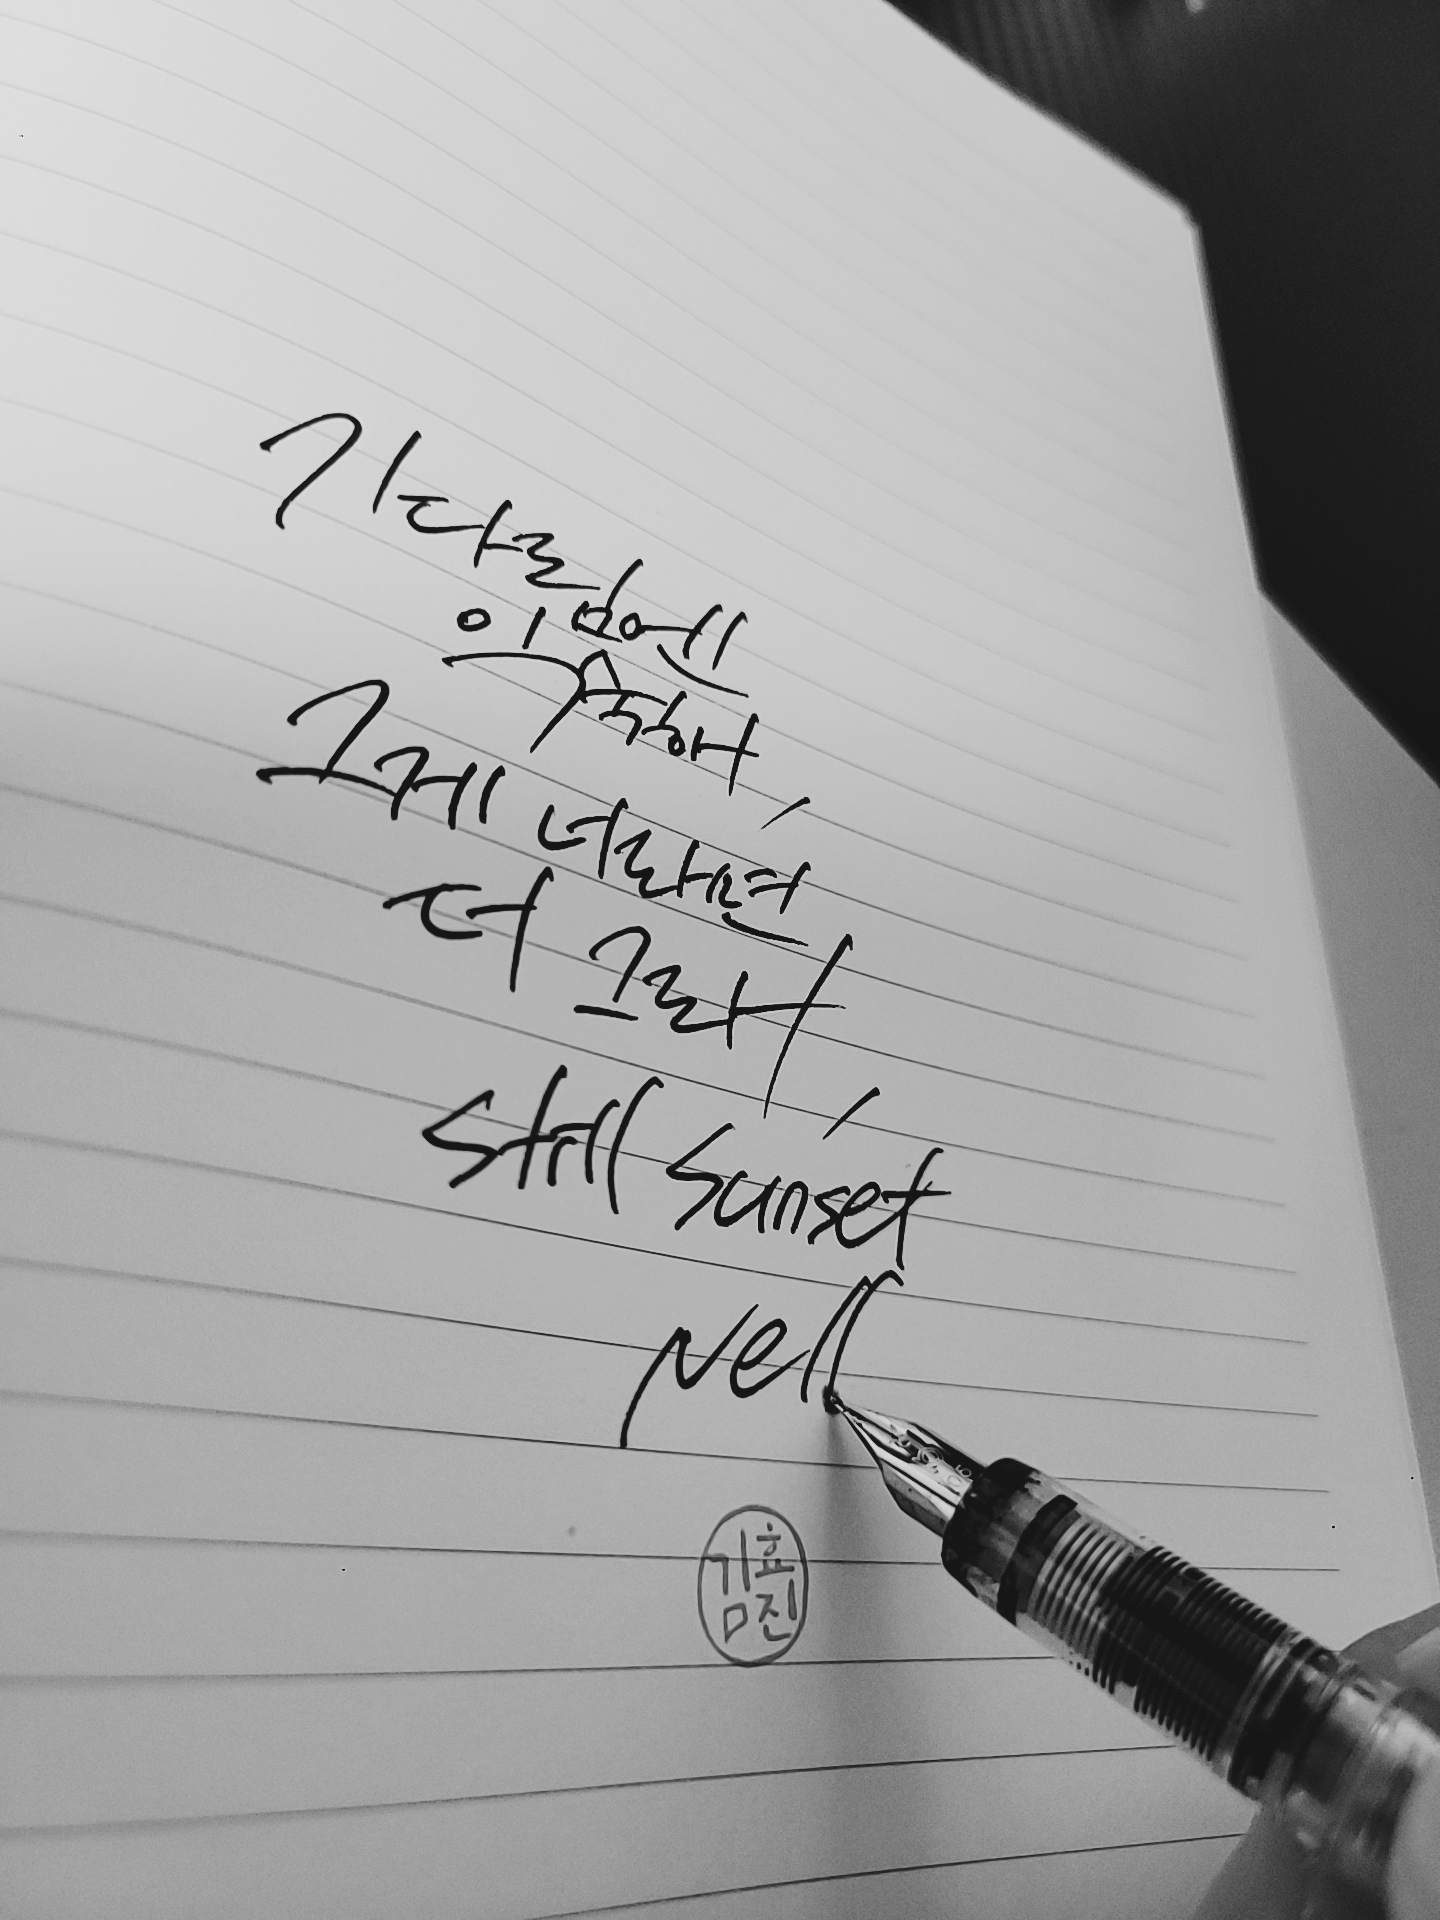 기다림엔
익숙해,
그게 너라면
더 그래,
Still Sunset
Nell
김효진